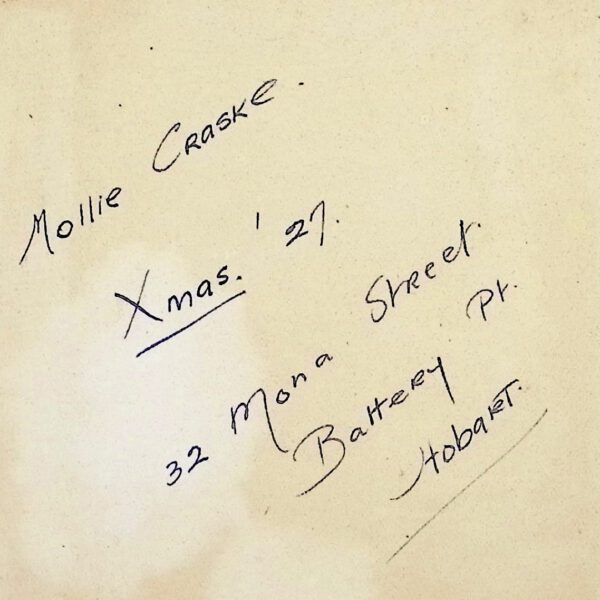 Mollie Craske.
Xmas. '27.
32 Mona Street.
Battery Pt.
Hobart.